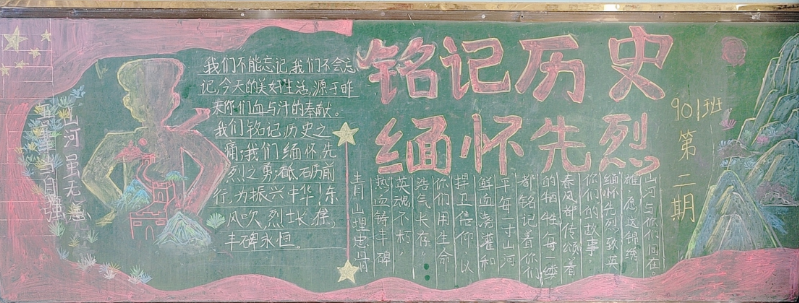 铭记历史
缅怀先烈
901班
第二期
山河虽无恙
吾辈当自强
我们不能忘记,我们不会忘
记,今天的美好生活,源于昨
来你们血与汗的奉献。
我们铭记历史之
痛;我们缅怀先
烈之勇;砥砺前
行,为振兴中华,东
风吹,烈士长,
丰碑永恒。
缅怀先烈致英
你们的故事
春风都传颂着
的牺牲每一缕
都铭记着你们
年年一寸山河
鲜血浇灌和
捍卫信仰以
你们用生命
浩气长存
英魂不朽
热血铸丰碑
青山埋忠骨